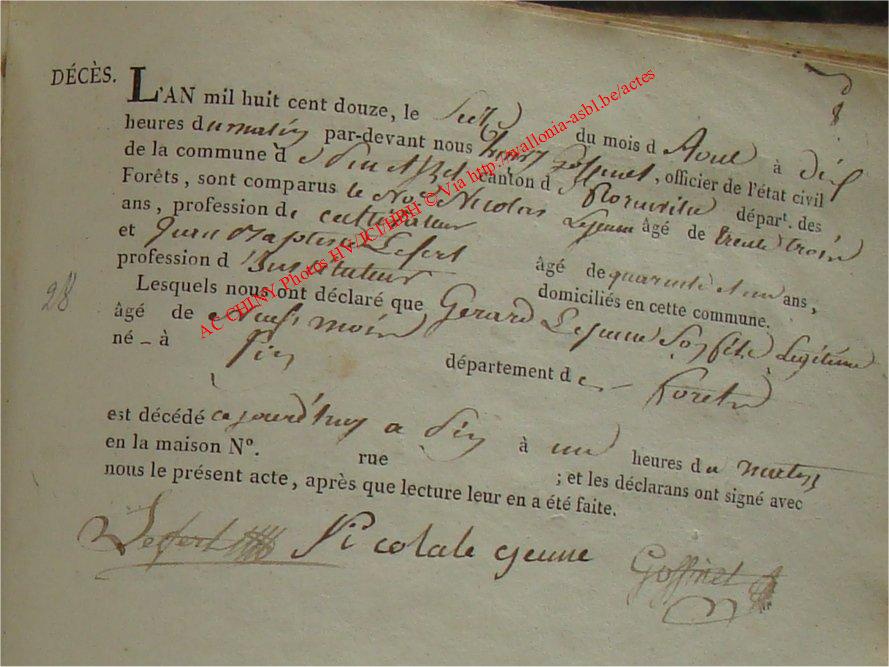 DÉCÈS.
L'AN mil huit cent douze, le seize du mois d'Aout à dix
heures du matin par-devant nous henry Goffinet, officier de l'état civil
de la commune de Pin et Izel canton de florenville, départ. des
Forêts, sont comparus le Nicolas Lejeune âgé de trente trois
ans, profession de cultivateur
et Jean Baptiste Lefert âgé de quarante et un ans,
profession d'Instituteur domiciliés en cette commune.
Lesquels nous ont déclaré que Gerard Lejeune Son fils Legitime
âgé de neuf mois
né à Pin département des Forets
28
est décédé ce jourd'huy a Pin à une heures du matin
en la maison Nº. rue ; et les déclarans ont signé avec
nous le présent acte, après que lecture leur en a été faite.
Lefert Nicola le jeune Goffinet
AC CHINY, Photos © Via http://wallonia-asbl.be/actes